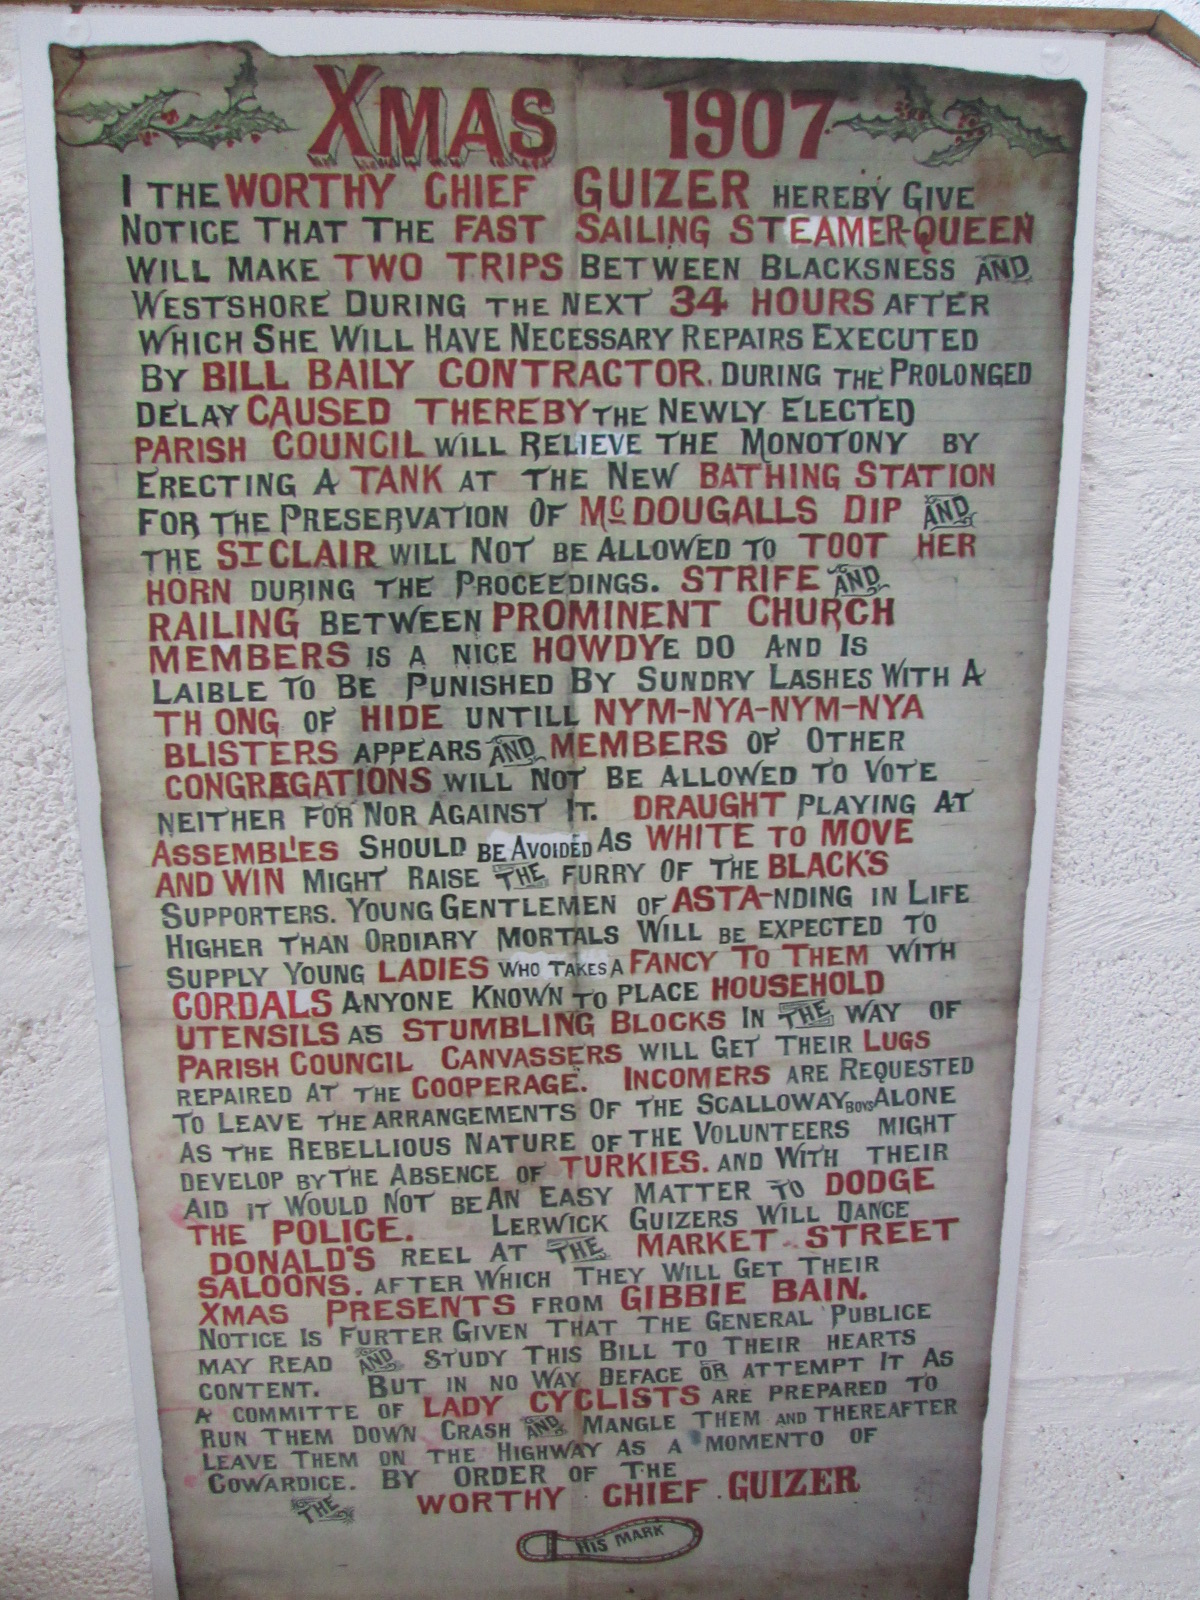 XMAS 1907
I THE WORTHY CHIEF GUIZER HEREBY GIVE
NOTICE THAT THE FAST SAILING STEAMER-QUEEN
WILL MAKE TWO TRIPS BETWEEN BLACKSNESS AND
WESTSHORE DURING THE NEXT 34 HOURS AFTER
WHICH SHE WILL HAVE NECESSARY REPAIRS EXECUTED
BY BILL BAILY CONTRACTOR. DURING THE PROLONGED
DELAY CAUSED THEREBY THE NEWLY ELECTED
PARISH COUNCIL WILL RELIEVE THE MONOTONY BY
ERECTING A TANK AT THE NEW BATHING STATION
FOR THE PRESERVATION OF McDOUGALLS DIP AND
THE ST CLAIR WILL NOT BE ALLOWED TO TOOT HER
HORN DURING THE PROCEEDINGS. STRIFE AND
RAILING BETWEEN PROMINENT CHURCH
MEMBERS IS A NICE HOWDYE DO AND IS
LAIBLE TO BE PUNISHED BY SUNDRY LASHES WITH A
TH ONG OF HIDE UNTILL NYM-NYA-NYM-NYA
BLISTERS APPEARS AND MEMBERS OF OTHER
CONGREGATIONS WILL NOT BE ALLOWED TO VOTE
NEITHER FOR NOR AGAINST IT. DRAUGHT PLAYING AT
ASSEMBL'ES SHOULD BE AVOIDED AS WHITE TO MOVE
AND WIN MIGHT RAISE THE FURRY OF THE BLACK'S
SUPPORTERS. YOUNG GENTLEMEN OF ASTA-NDING IN LIFE
HIGHER THAN ORDIARY MORTALS WILL BE EXPECTED TO
SUPPLY YOUNG LADIES WHO TAKES A FANCY TO THEM WITH
CORDALS ANYONE KNOWN TO PLACE HOUSEHOLD
UTENSILS AS STUMBLING BLOCKS IN THE WAY OF
PARISH COUNCIL CANVASSERS WILL GET THEIR LUGS
REPAIRED AT THE COOPERAGE. INCOMERS ARE REQUESTED
TO LEAVE THE ARRANGEMENTS OF THE SCALLOWAY BOYS ALONE
AS THE REBELLIOUS NATURE OF THE VOLUNTEERS MIGHT
DEVELOP BY THE ABSENCE OF TURKIES. AND WITH THEIR
AID IT WOULD NOT BE AN EASY MATTER TO DODGE
THE POLICE. LERWICK GUIZERS WILL DANCE
DONALD'S REEL AT THE MARKET STREET
SALOONS. AFTER WHICH THEY WILL GET THEIR
XMAS PRESENTS FROM GIBBIE BAIN.
NOTICE IS FURTER GIVEN THAT THE GENERAL PUBLICE
MAY READ AND STUDY THIS BILL TO THEIR HEARTS
CONTENT. BUT IN NO WAY DEFACE OR ATTEMPT IT AS
A COMMITTE OF LADY CYCLISTS ARE PREPARED TO
RUN THEM DOWN CRASH AND MANGLE THEM AND THEREAFTER
LEAVE THEM ON THE HIGHWAY AS A MOMENTO OF
COWARDICE. BY ORDER OF THE
THE WORTHY CHIEF GUIZER
HIS MARK